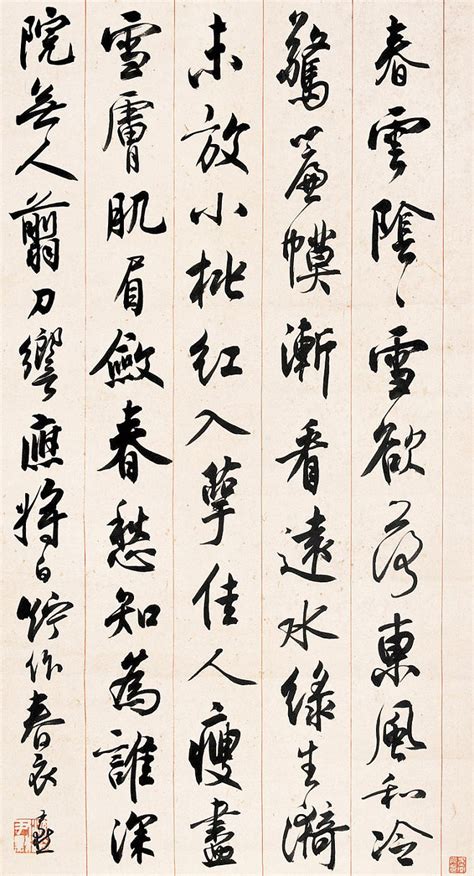 春雲陰〻雪欲落東風和冷
驚簾幙漸看遠水綠生漪
未放小桃紅入萼佳人瘦盡
雪膚肌眉斂春愁知為誰深
院無人翦刀響應將白紵作春衣 尹默